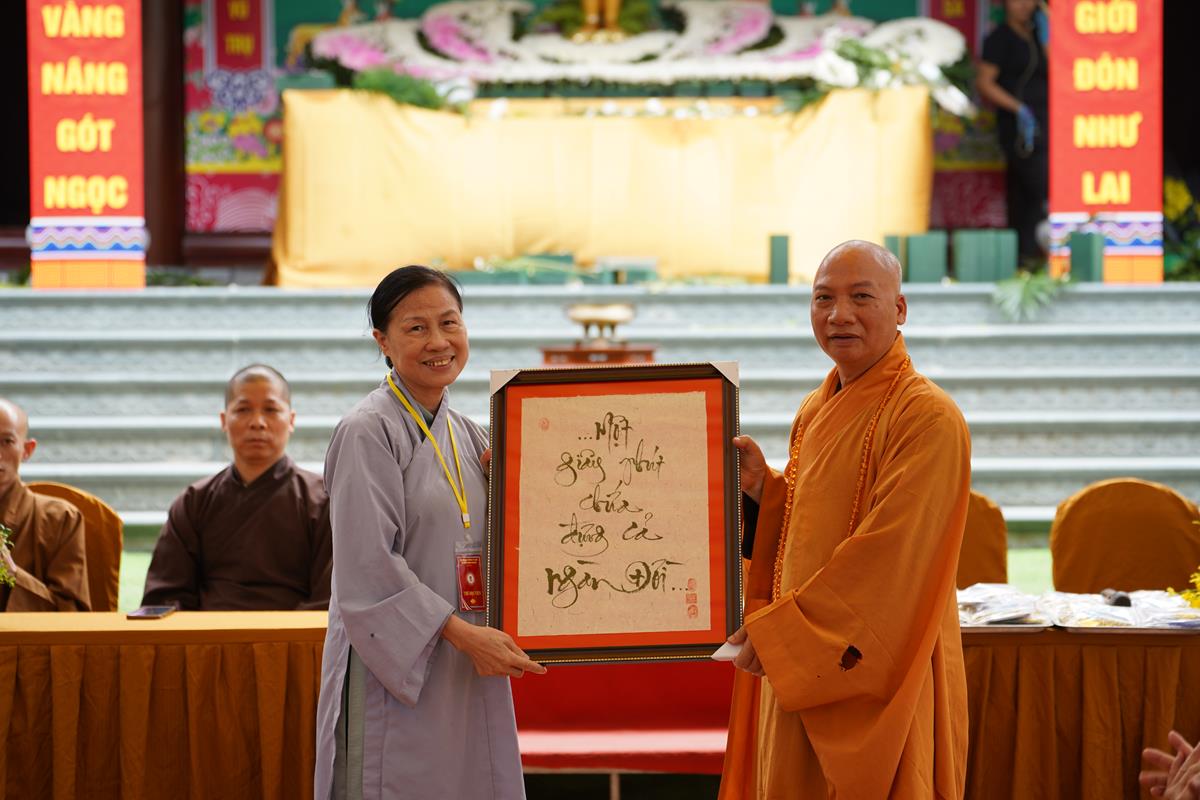 VÀNG
NÂNG
GÓT
NGỌC
GIỚI
ĐÓN
NHƯ
LAI
...Một
giây phút
chứa
đựng cả
ngàn Đời...